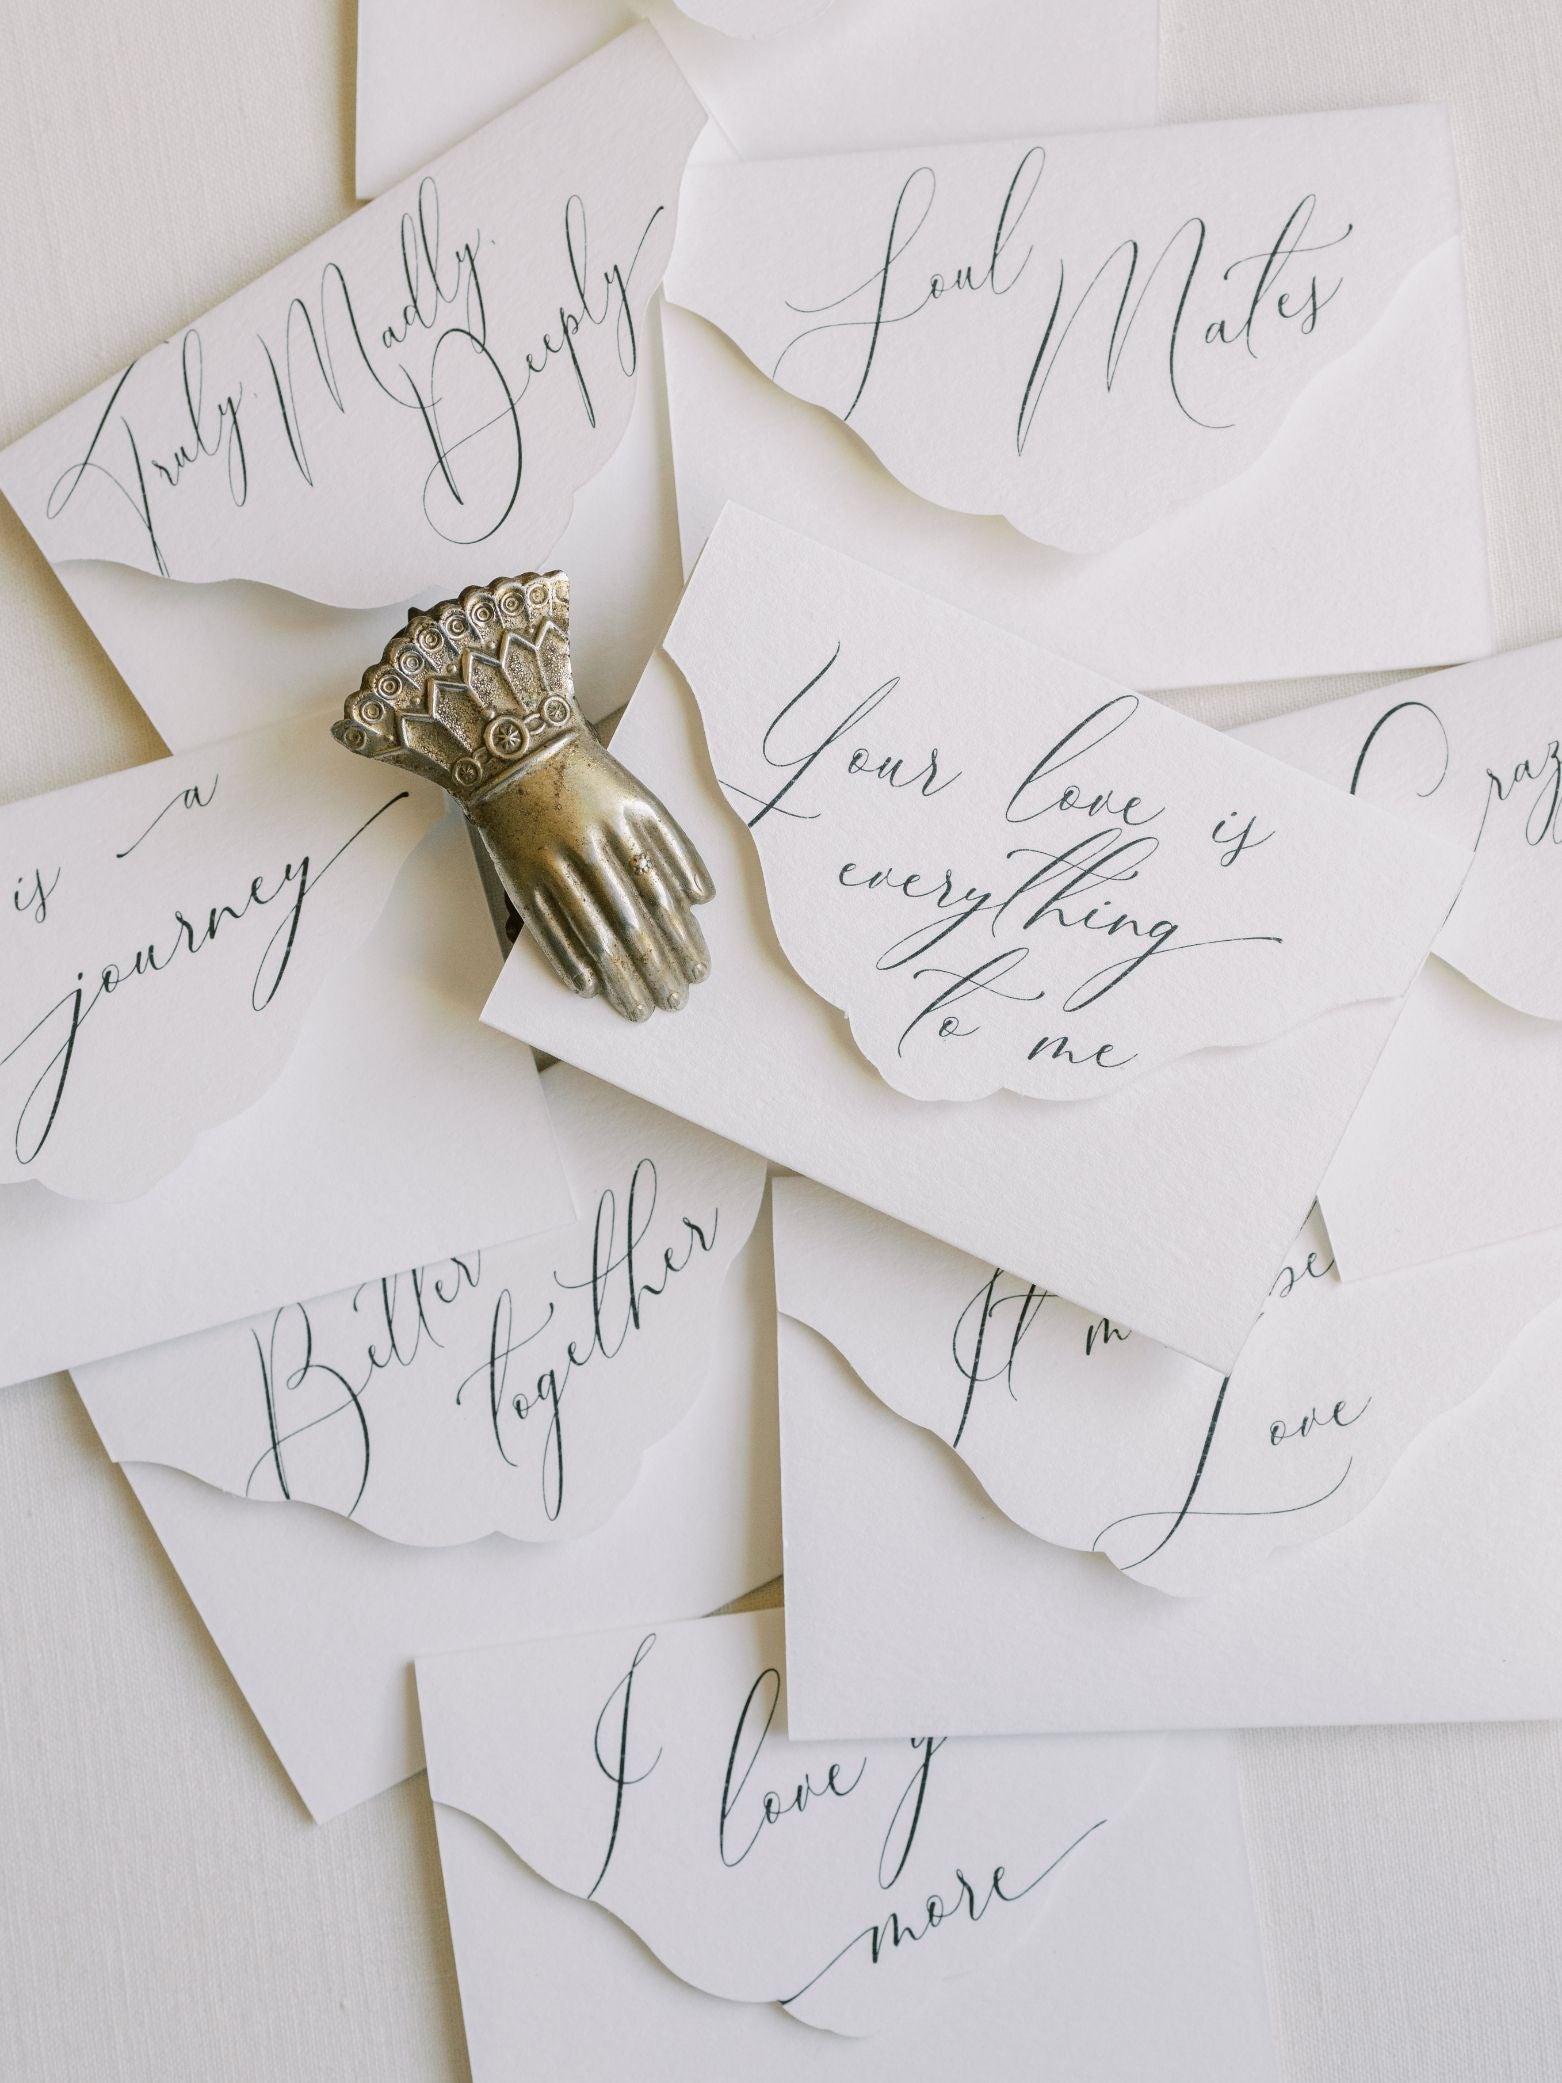 Truly, Madly,
Deeply
Soul
Mates
Your love is
everything
to me
is a
journey
Better
together
It
Love
I love
more